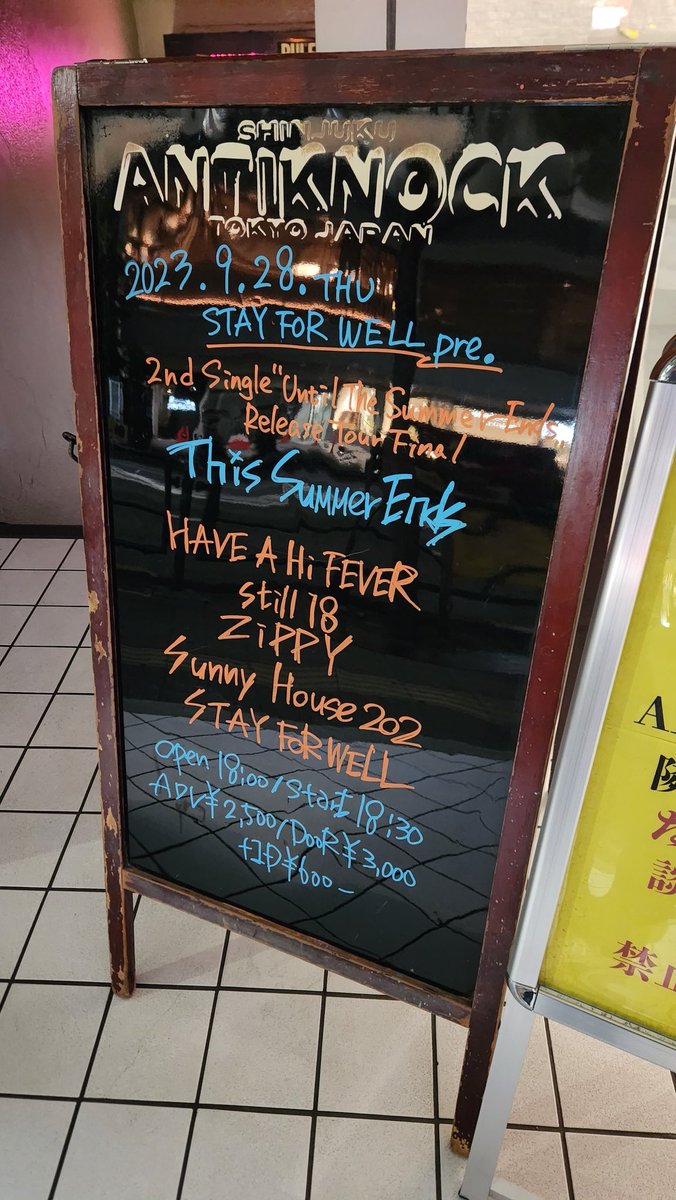 SHINJUKU
ANTIKNOCK
TOKYO JAPAN
2023.9.28.THU
STAY FOR WELL pre.
2nd Single "Until The Summer Ends"
Release Tour Final
This Summer Ends
HAVE A Hi FEVER
Still 18
ZiPPY
Sunny House 202
STAY FOR WELL
open 18:00/Start 18:30
ADV ¥2,500/DOOR ¥3,000
+1D ¥600-
禁止